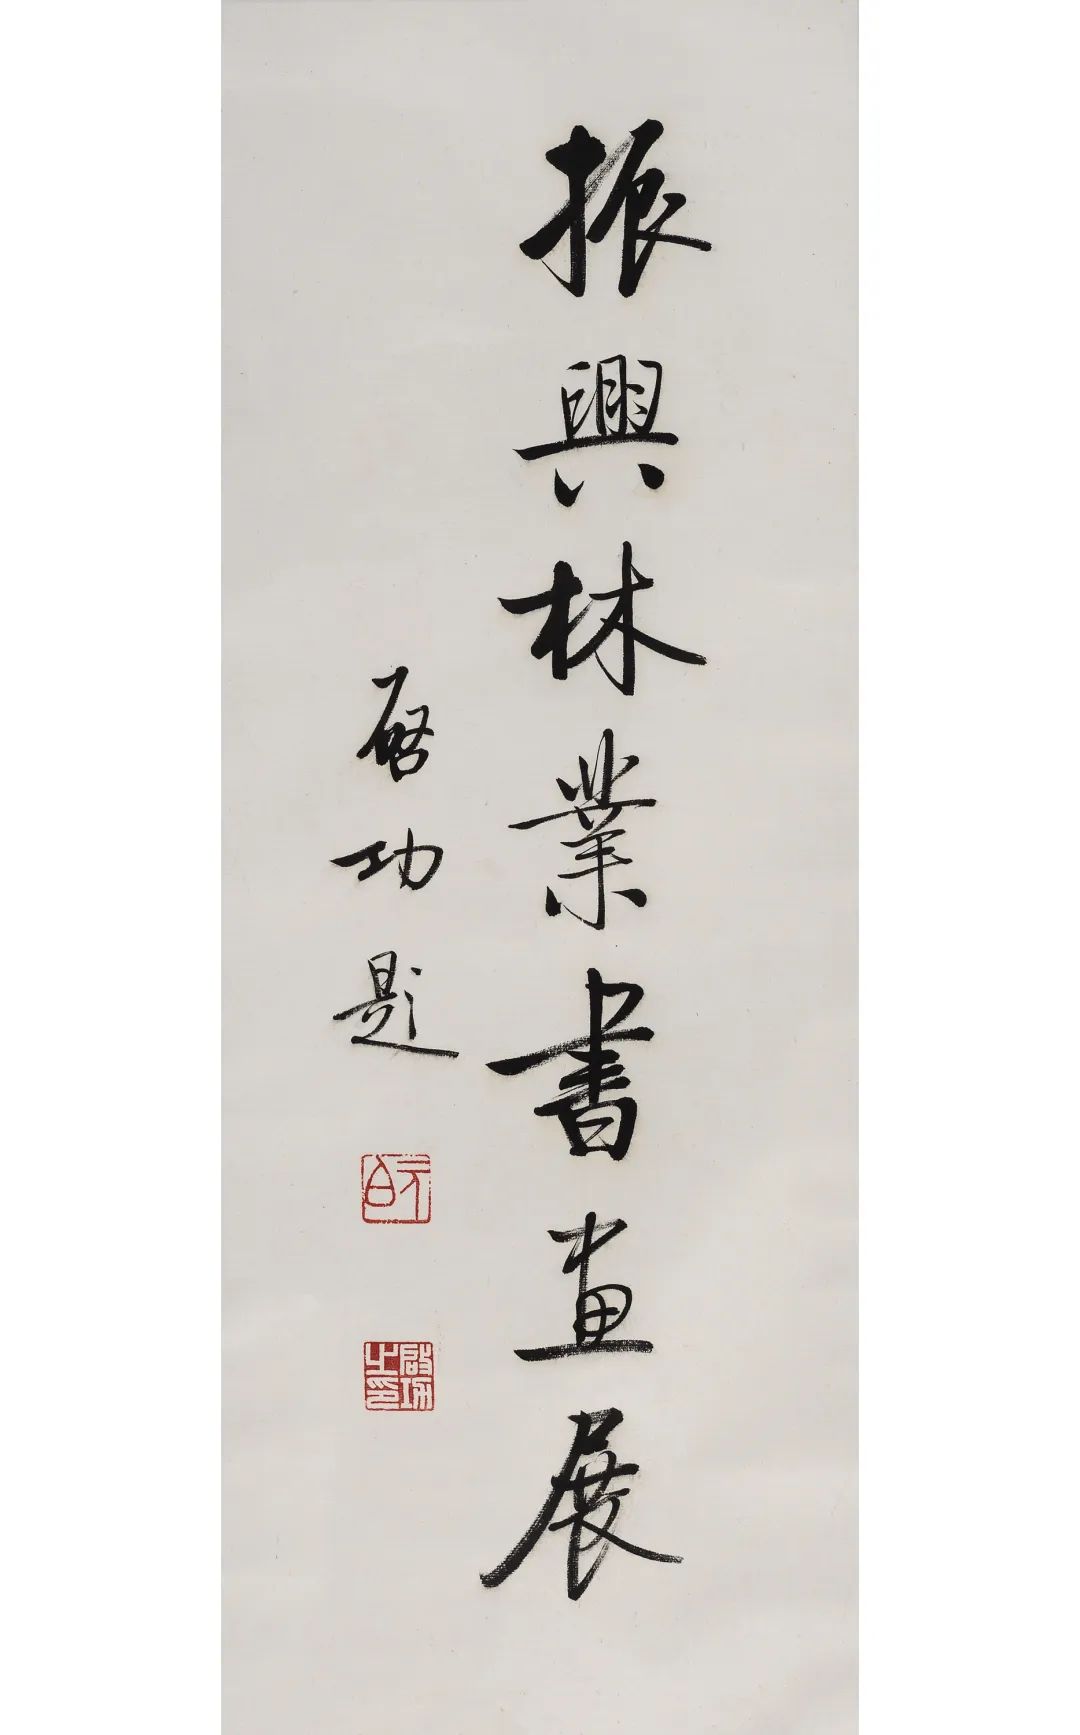 振興林業書画展
啓功題
元白
啓功之印